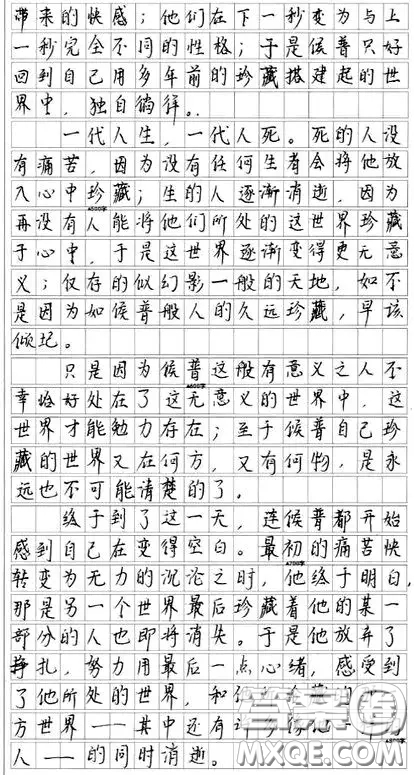 带来的快感；他们在下一秒变为与上
一秒完全不同的性格；于是侯普只好
回到自己用多年前的珍藏搭建起的世
界中，独自徜徉。
一代人生，一代人死。死的人没
有痛苦，因为没有任何生者会将他放
入心中珍藏；生的人逐渐消逝，因为
▲500字
再没有人能将他们所处的这世界珍藏
于心中，于是这世界逐渐变得更无意
义；仅存的似幻影一般的天地，如不
是因为如侯普般人的久远珍藏，早该
倾圮。
只是因为侯普这般有意义之人不
▲600字
幸恰好处在了这无意义的世界中，这
世界才能勉力存在；至于候普自己珍
藏的世界又在何方，又有何物，是永
远也不可能清楚的了。
终于到了这一天，连候普都开始
感到自己在变得空白。最初的痛苦快
▲700字
转变为无力的沉沦之时，他终于明白，
那是另一个世界最后珍藏着他的某一
部分的人也即将消失。于是他放弃了
挣扎，努力用最后一点心绪，感受到
了他所处的世界，和
方世界——其中还有
▲800字
人——的同时消逝。
MXQE.COM